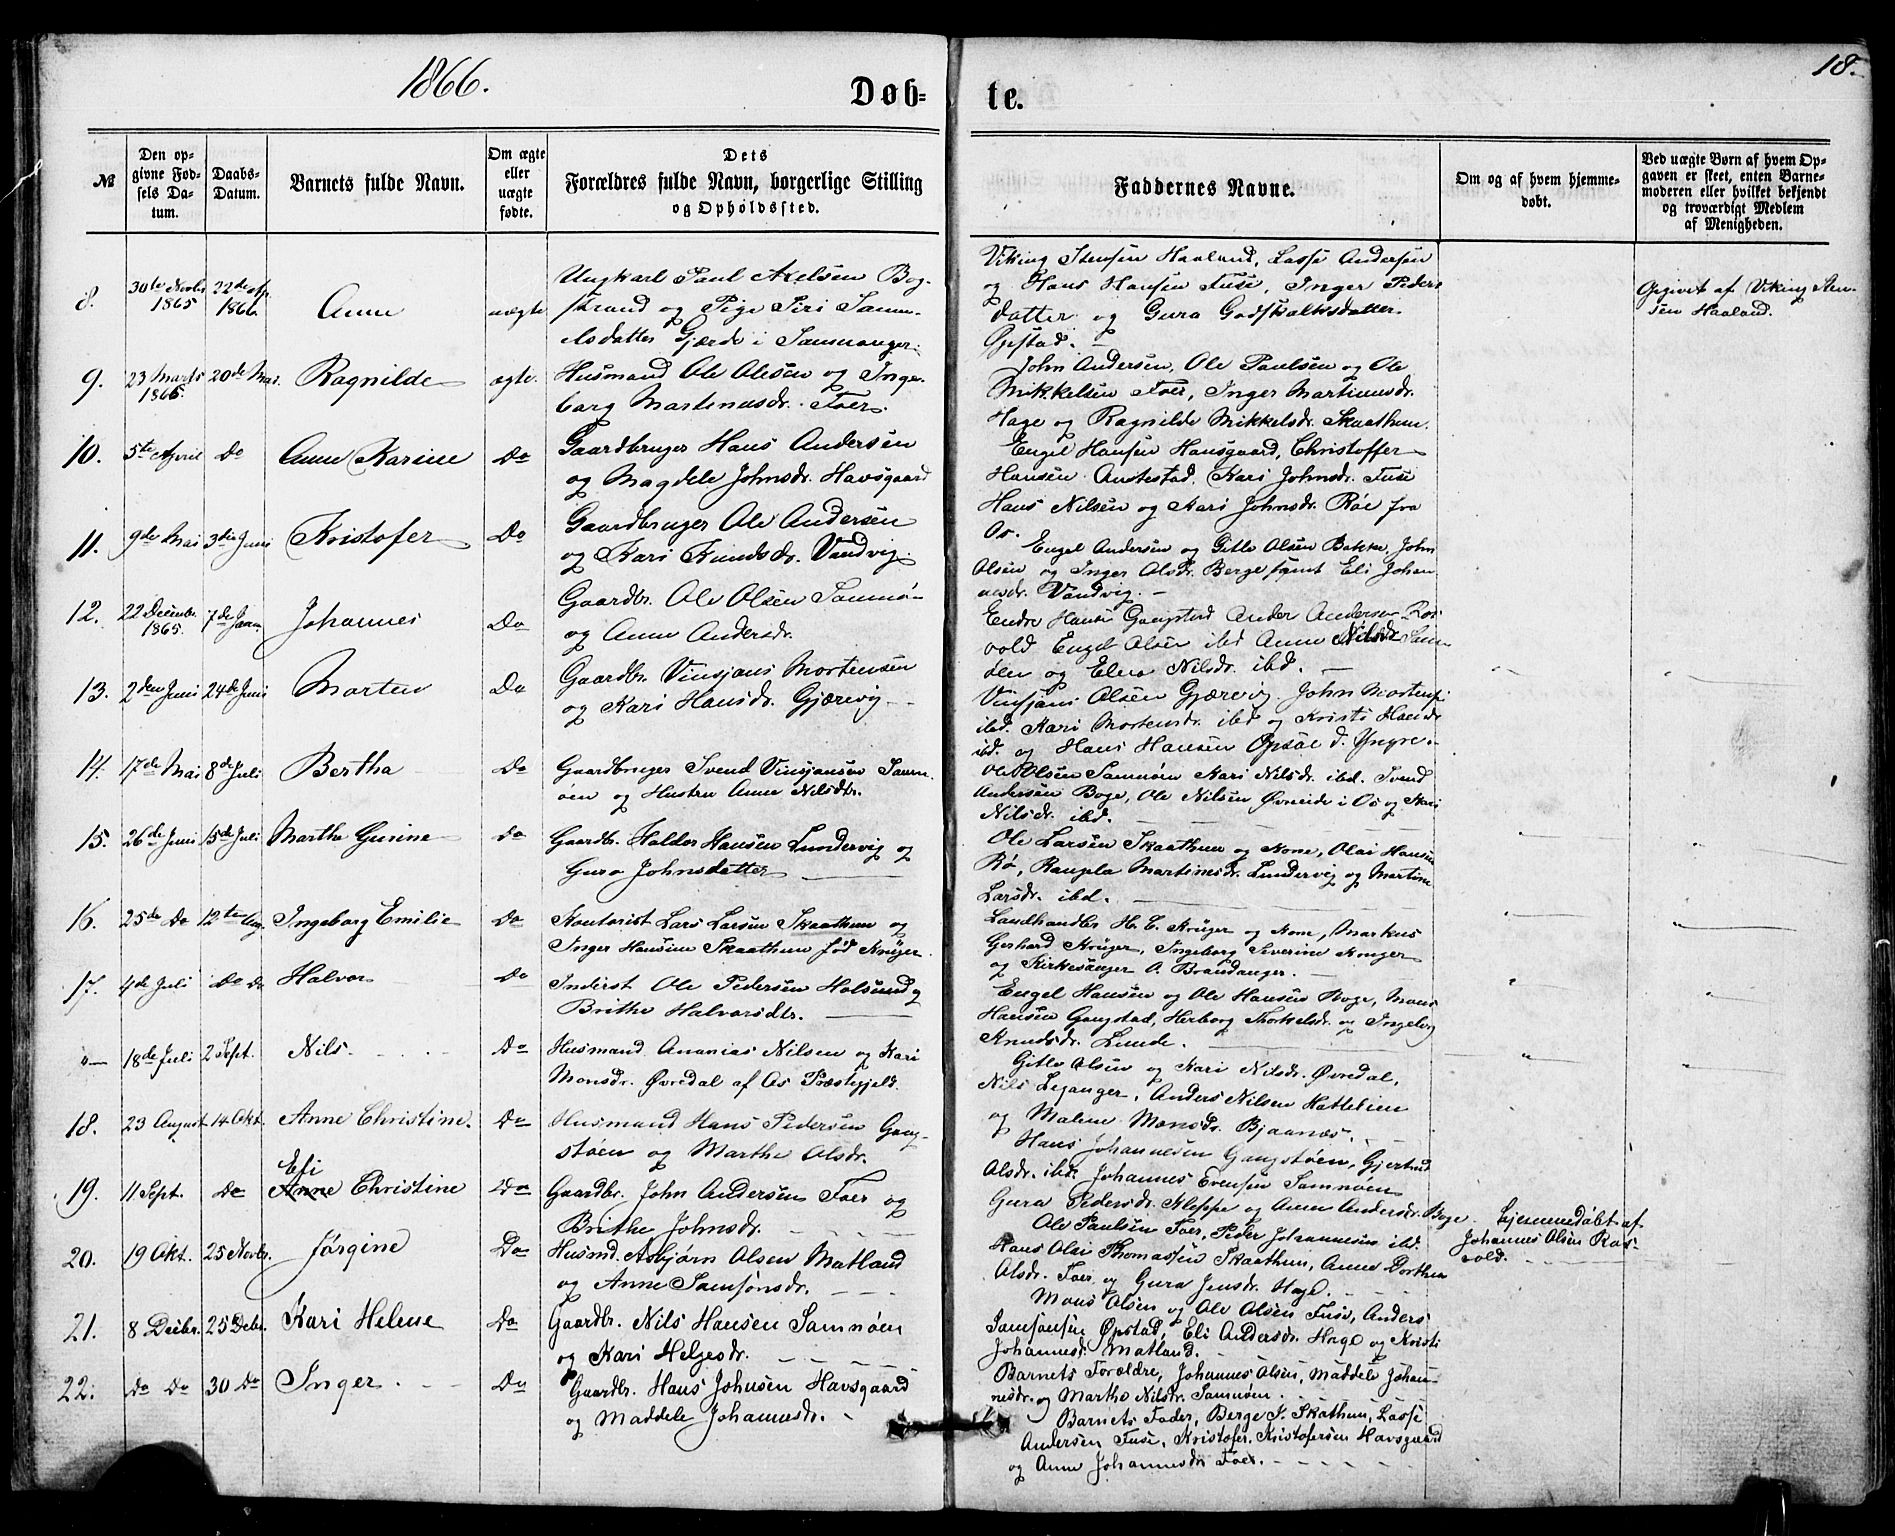 1866.
18.
Døb-
te.
№
Den op-
givne Fød-
sels Da-
tum.
Daabs-
Datum.
Barnets fulde Navn.
Om ægte
eller
uægte
fødte.
Dets
Forældres fulde Navn, borgerlige Stilling
og Opholdssted.
Faddernes Navne.
Om og af hvem hjemme-
døbt.
Ved uægte Børn af hvem Op-
gaven er skeet, enten Barne-
moderen eller hvilket bekjendt
og troværdigt Medlem
af Menigheden.
8.
30te Novbr
1865
22de Ap.
1866.
Anne
uægte
Ungkarl Paul Axelsen Bog-
strand og Pige Siri Samu-
elsdatter Gjærde i Samnanger.
Viking Stensen Haaland, Lasse Andersen
og Hans Hansen Fuse, Inger Peders
datter og Gura Godskalksdatter
Opstad.
Opgivet af Viking Sten-
sen Haaland.
9.
23 Marts
1866.
20de Mai.
Ragnilde
ægte.
Husmand Ole Olesen og Inge-
borg Martinusdr. Foer.
John Andersen, Ole Paulsen og Ole
Mikkelsen Foer, Inger Martinusdr.
Hage og Ragnilde Mikkelsdr. Skaathun.
10.
5te April
Do
Anne Karine
Do
Gaardbruger Hans Andersen
og Magdele Johnsdr. Havsgaard
Engel Hansen Hausgaard, Christoffer
Hansen Austestad, Kari Johnsdr. Fuse
Hans Nilsen og Kari Johnsdr. Røe fra
Os.
11.
9de Mai
3die Juni
Kristofer
Do
Gaardbruger Ole Andersen
og Kari Knudsdr. Vandvig.
Engel Andersen og Gitle Olsen Bakke, John
Olsen og Inger Olsdr. Berge samt Eli Johan
nesdr. Vandvig.
12.
22 Decembr.
1865.
7de Janr.
Johannes
Do
Gaardbr. Ole Olsen Samnø-
og Anne Andersdr.
Endre Hansen Gangstad Ander Andersen Ros-
vold Engel Olsen ibd Anne Nilsdr Sam-
øen og Elen Nilsdr. ibd.
13.
2den Juni
24de Juni
Morten
Do
Gaardbr. Vinsjans Mortensen
og Kari Hansdr. Gjærevig
Vinsjans Olsen Gjærevig. John Mortens.
ibd. Kari Mortensdr. ibd og Kristi Hansdr
ibd. og Hans Hansen Opsal d. Yngre.
14.
17de Mai
8de Juli
Bertha
Do
Gaardbruger Svend Vinsjansen Samn-
øen og Hustru Anne Nilsdtr.
Ole Olsen Samnøen Kari Nilsdr. ibd. Svend
Andersen Boge, Ole Nilsen Øvreeide i Os og Kari
Nilsdr. ibd.
15.
26de Juni
15de Juli
Martha Gurine
Do
Gaardbr. Haldor Hansen Lundervig og
Guro Johnsdatter
Ole Larsen Skaathun og Kone, Olai Hansen
Rø, Raupla Martinesdr. Lundervig og Martine
Larsdr. ibd.
16.
25de Do
12te Aug.
Ingeborg Emilie
Do
Kontorist Lars Larsen Skaathun og
Inger Hansine Skaathun fød Krüger.
Landhandler H. E. Krüger og Kone, Markus
Gerhard Krüger, Ingeborg Severine Krüger
og Kirkesanger O. Brandanger.
17.
4de Juli
Do Do
Halvor
Do
Inderst Ole Pedersen Holsund og
Brithe Halvorsdtr.
Engel Hansen og Ole Hansen Boge, Mons
Hansen Gangstad, Herborg Thorkelsdr. og Ingeborg
Knudsdr. Lunde.
"—
18de Juli
2 Sept.
Nils
Do
Husmand Ananias Nilsen og Kari
Monsdr. Øvredal af Os Præstegjeld.
Gitle Olsen og Kari Nilsdr. Øvredal,
Nils Leganger, Anders Nilsen Hattelien
og Malene Monsdr. Bjaanæs.
18.
23 August
14 Okt.
Anne Christine.
Do
Husmand Hans Pedersen Gang-
støen og Marthe Olsdr.
Hans Johannesen Gangstøen, Gjertrud
Olsdr. ibd. Johannes Evensen Samnøen
Gura Pedersdr. Kleppe og Anne Andersdr. Boge.
19.
11 Sept.
Do
Eli
Anne Christine
Do
Gaardbr. John Andersen Foer og
Brithe Johnsdr.
Ole Paulsen Foer, Peder Johannesen ibd.
Hans Olai Thomassen Skaathun, Anne Dorthea
Olsdr. Foer og Gura Jensdr. Hage.
Hjemmedøbt af
Johannes Olsen Ros-
vold.
20.
19 Okt.
25 Novbr.
Jørgine
Do
Husmd. Asbjørn Olsen Matland
og Anne Samsonsdr.
Mons Olsen og Ole Olsen Fuse, Anders
Samsonsen Opstad, Eli Andersdr. Hage og Kristi
Johannesdr. Matland.
21.
8 Decbr.
25 Decbr.
Kari Helene
Do
Gaardbr. Nils Hansen Samnøen
og Kari Helgesdr.
Barnets Forældre, Johannes Olsen, Maddele Johan-
nesdr. og Martha Nilsdr. Samnøen.
22.
Do Do
30 Do
Inger
Do
Gaardbr. Hans Johnsen Havsgaard
og Maddele Johannesdr.
Barnets Fader, Berge J. Skathun, Lasse
Andersen Fuse, Kristofer Kristofersen Havsgaard
og Anne Johannesdr Foer.